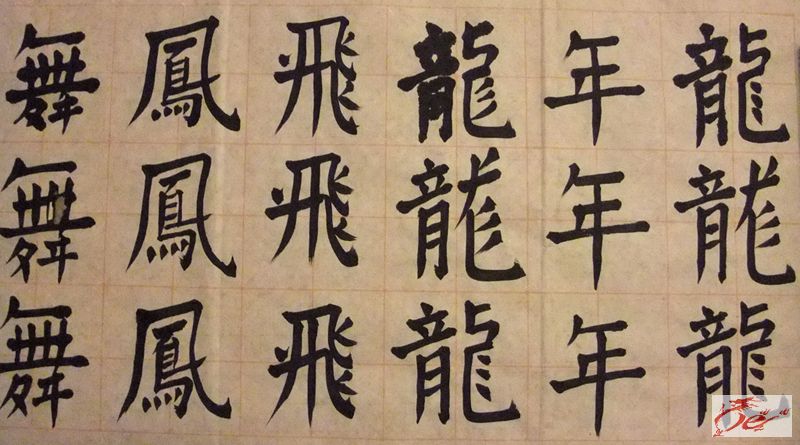 龍年龍飛鳳舞
龍年龍飛鳳舞
龍年龍飛鳳舞